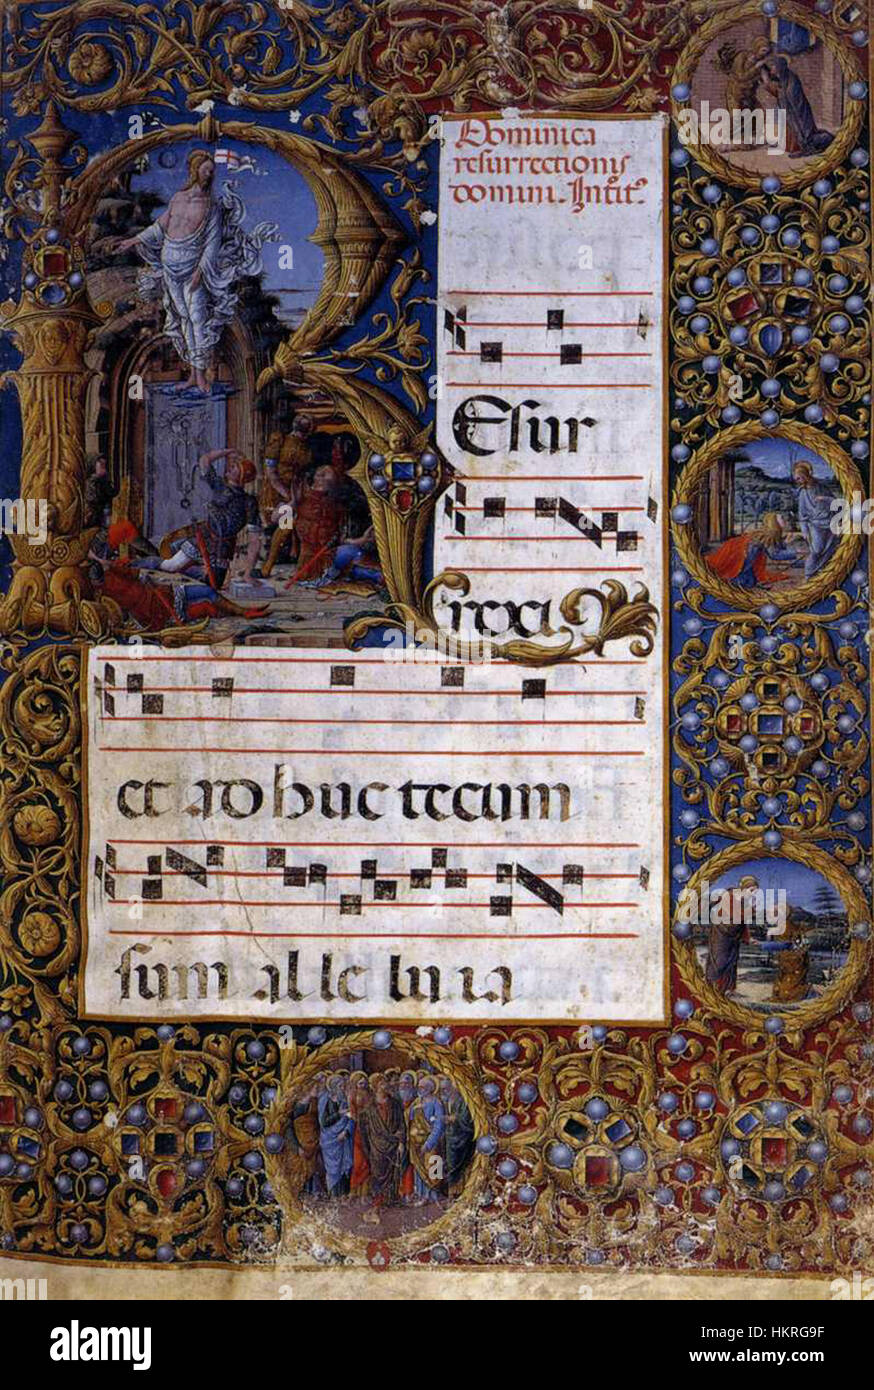 Dominica
resurrectionis
domini. Intit⁹
Esur
rexi
et adhuc tecum
sum alleluia
a
alamy
alamy
Image ID: HKRG9F
www.alamy.com